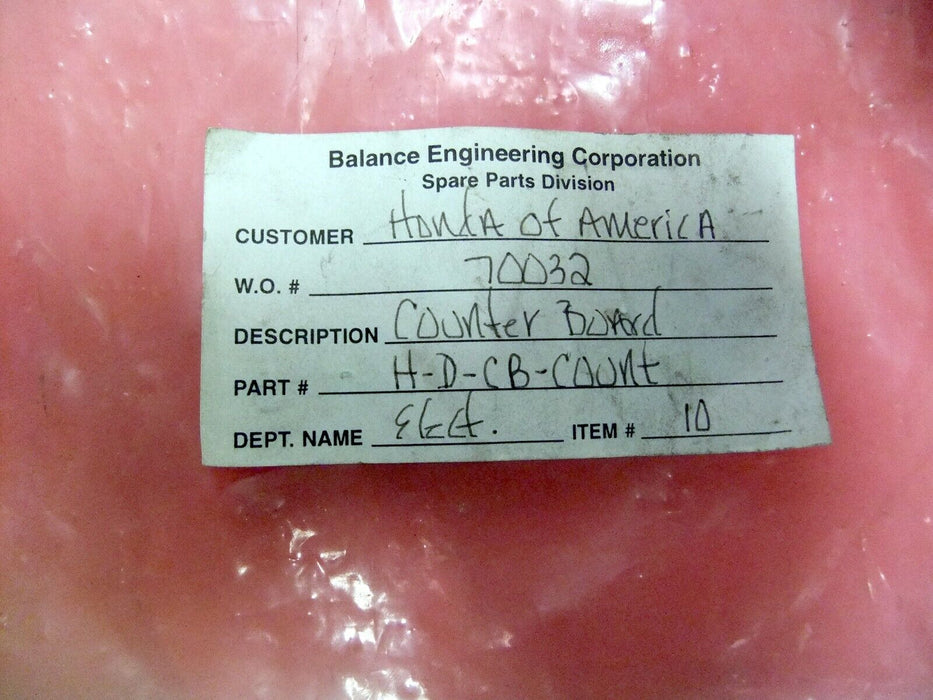 Balance Engineering Corporation
Spare Parts Division
CUSTOMER Honda of America
W.O. # 70032
DESCRIPTION Counter Board
PART # H-D-CB-Count
DEPT. NAME Elct. ITEM # 10